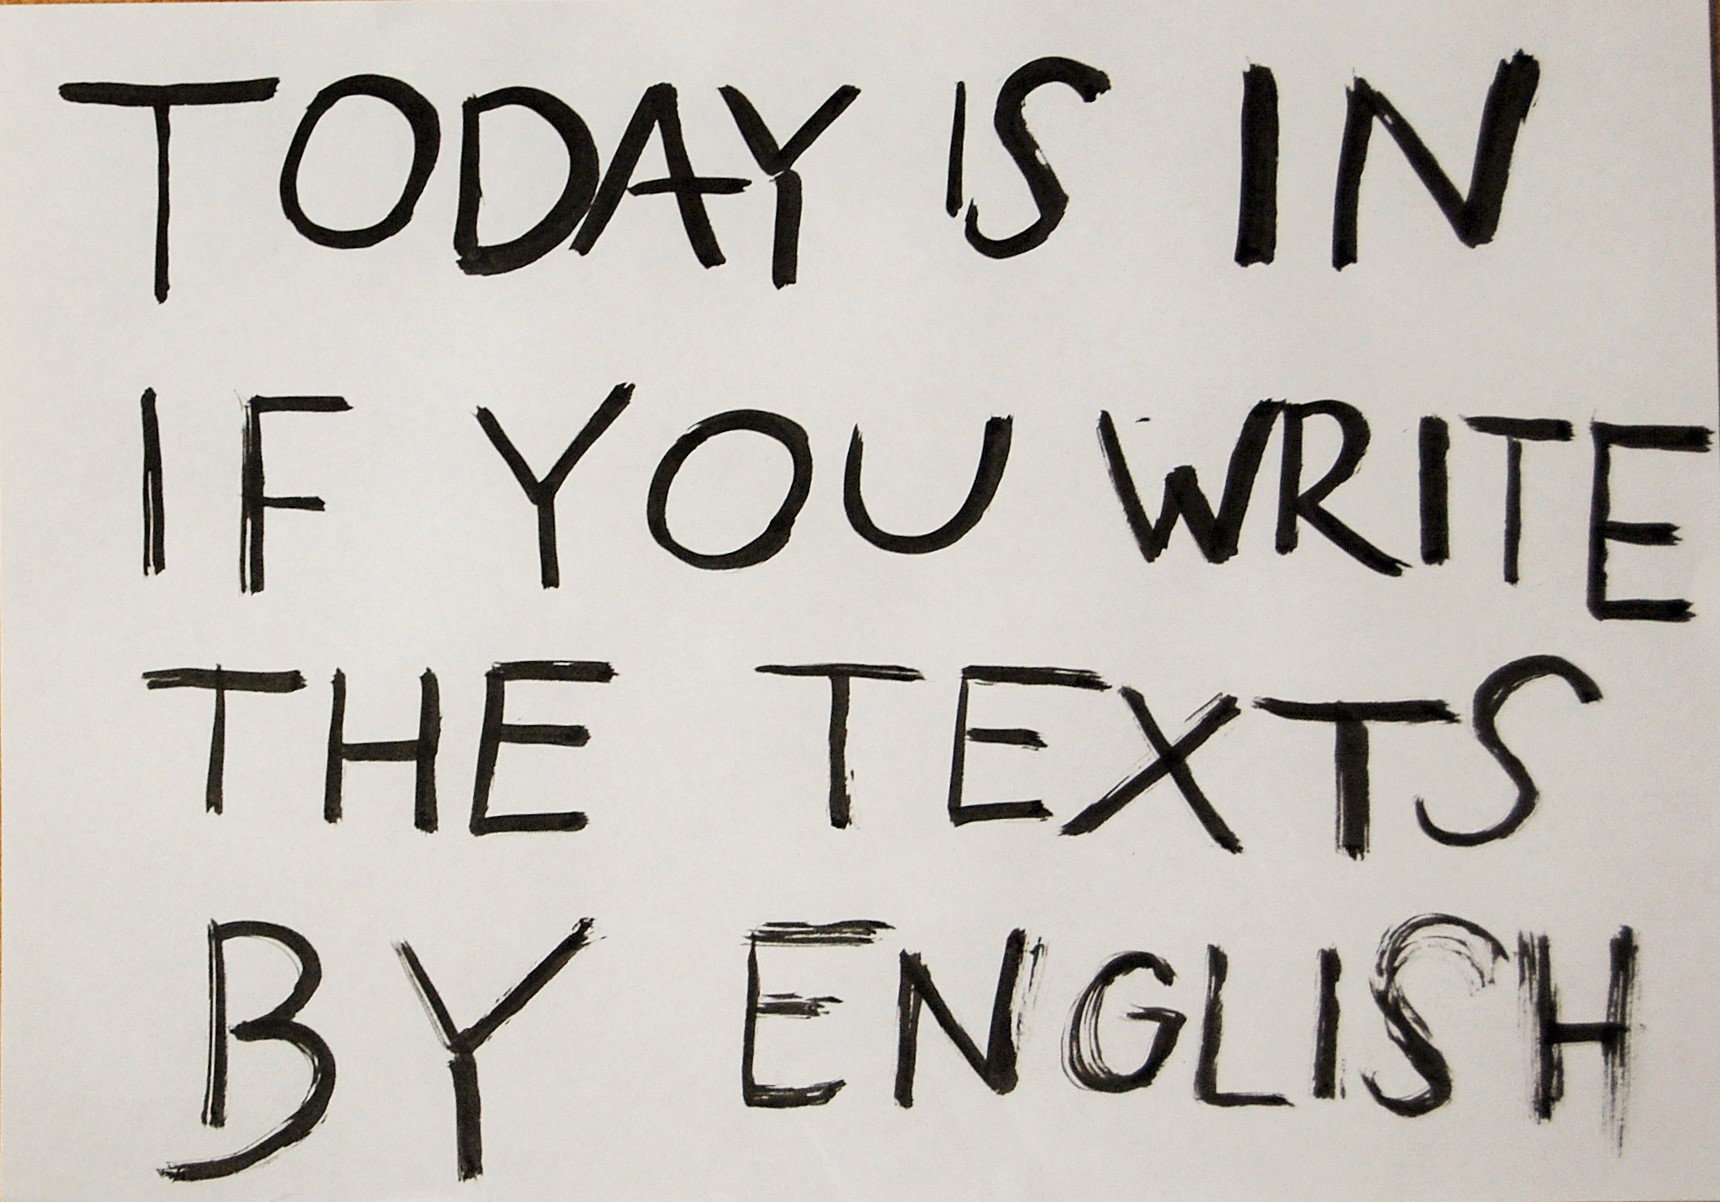 TODAY IS IN
IF YOU WRITE
THE TEXTS
BY ENGLISH